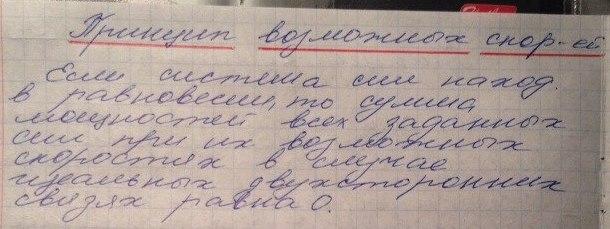 Принцип возможных скор-ей
Если система сил наход.
в равновесии, то сумма
мощностей всех заданных
сил при их возможных
скоростях в случае
идеальных двухсторонних
связях равна 0.